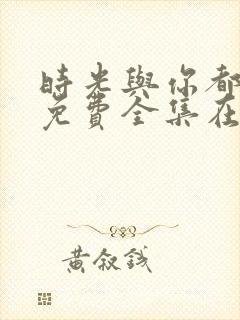 時光與你都
免費全集在
黃敘錢